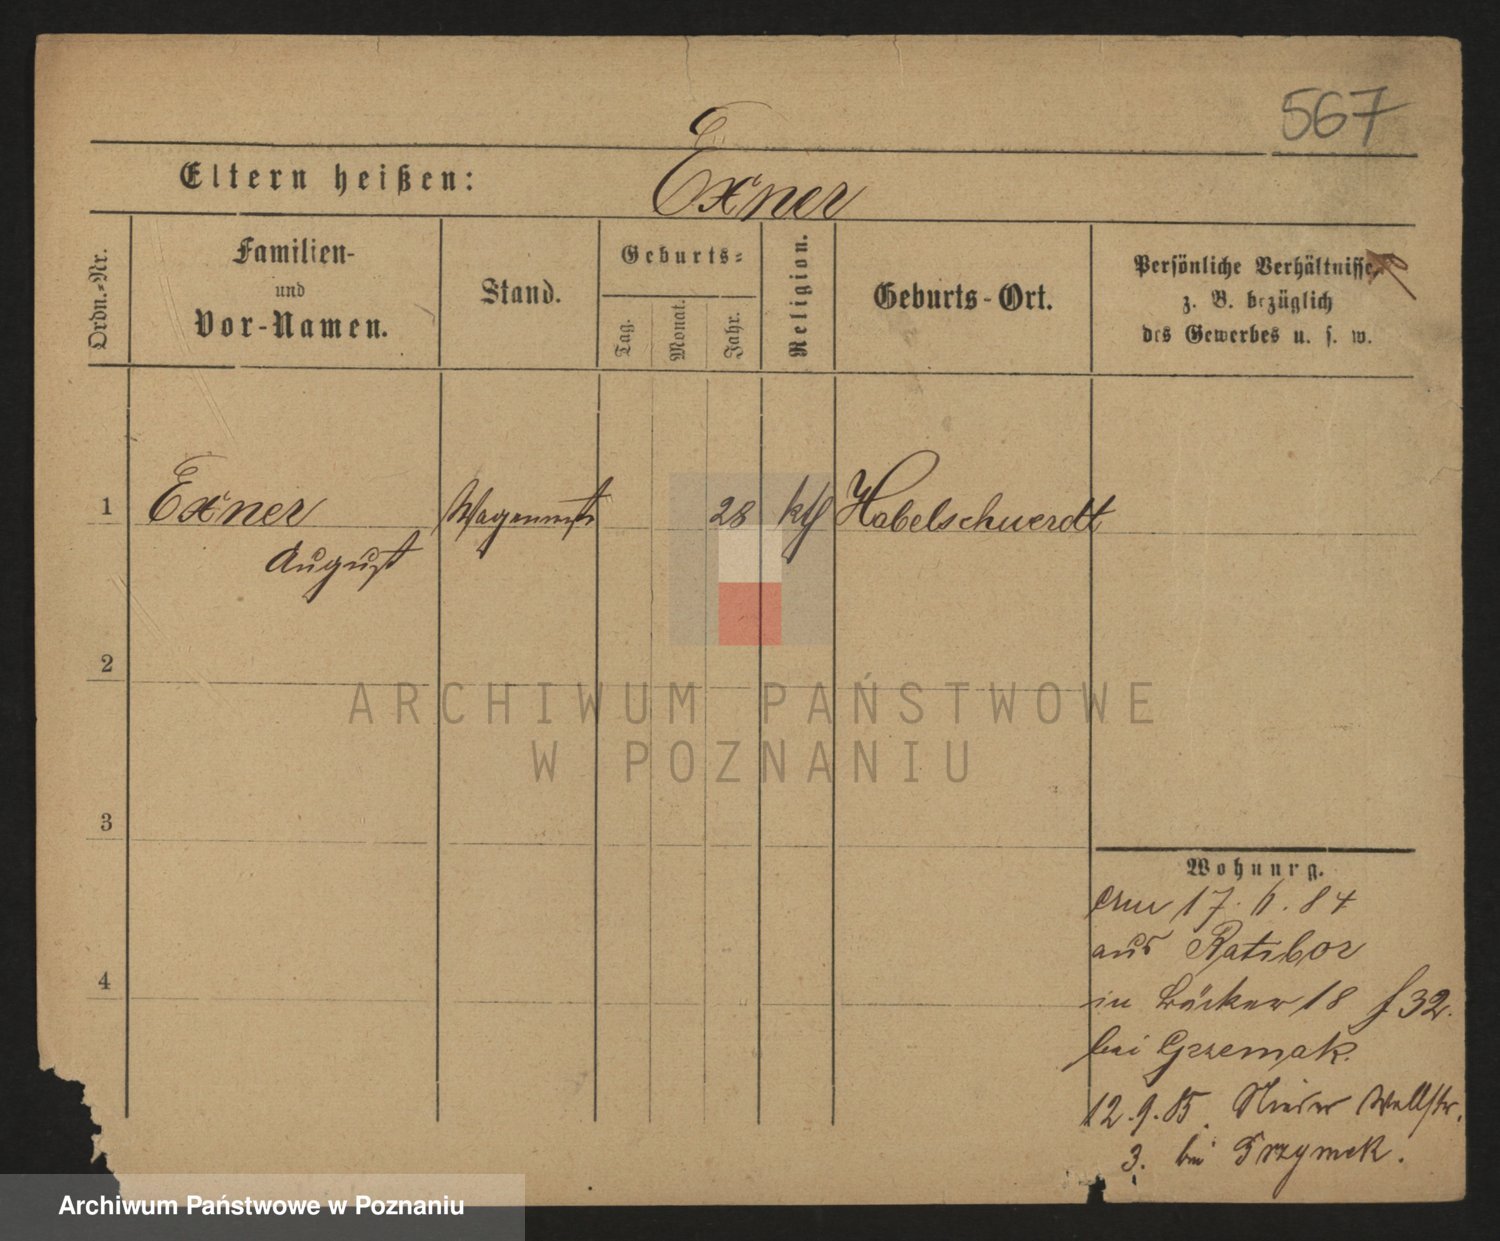 567
Eltern heißen: Exner
Ordn.-Nr.
Familien-
und
Vor-Namen.
Stand.
Geburts-
Tag.
Monat.
Jahr.
Religion.
Geburts-Ort.
Persönliche Verhältnisse
z. B. bezüglich
des Gewerbes u. s. w.
1 Exner 28 kth Habelschwerdt
August
2
ARCHIWUM PAŃSTWOWE
W POZNANIU
3
Wohnung.
17. 6. 84
aus Ratibor
in Bäcker 18 f 32.
bei Grzemak.
4
12. 9. 85. Nieder Wallstr.
3. bei Grzymek.
Archiwum Państwowe w Poznaniu